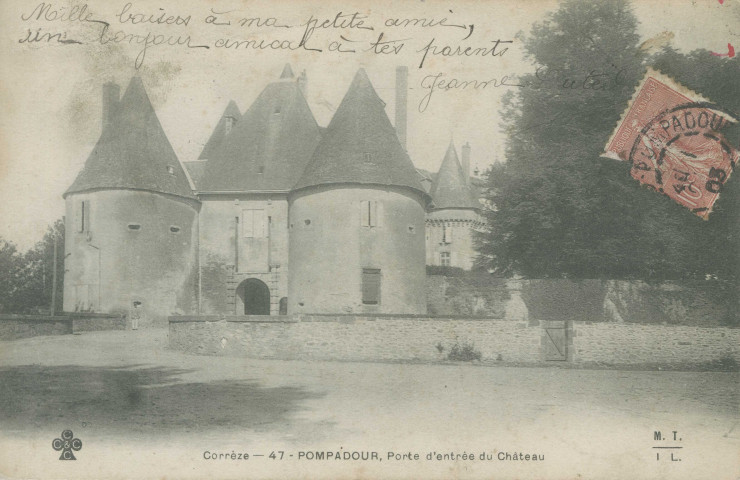 Mille baisers à ma petite amie,
bonjour amical à tes parents
Jeanne
POMPADOUR
03
10
Corrèze — 47 - POMPADOUR, Porte d'entrée du Château
C C C
M. T.
I L.